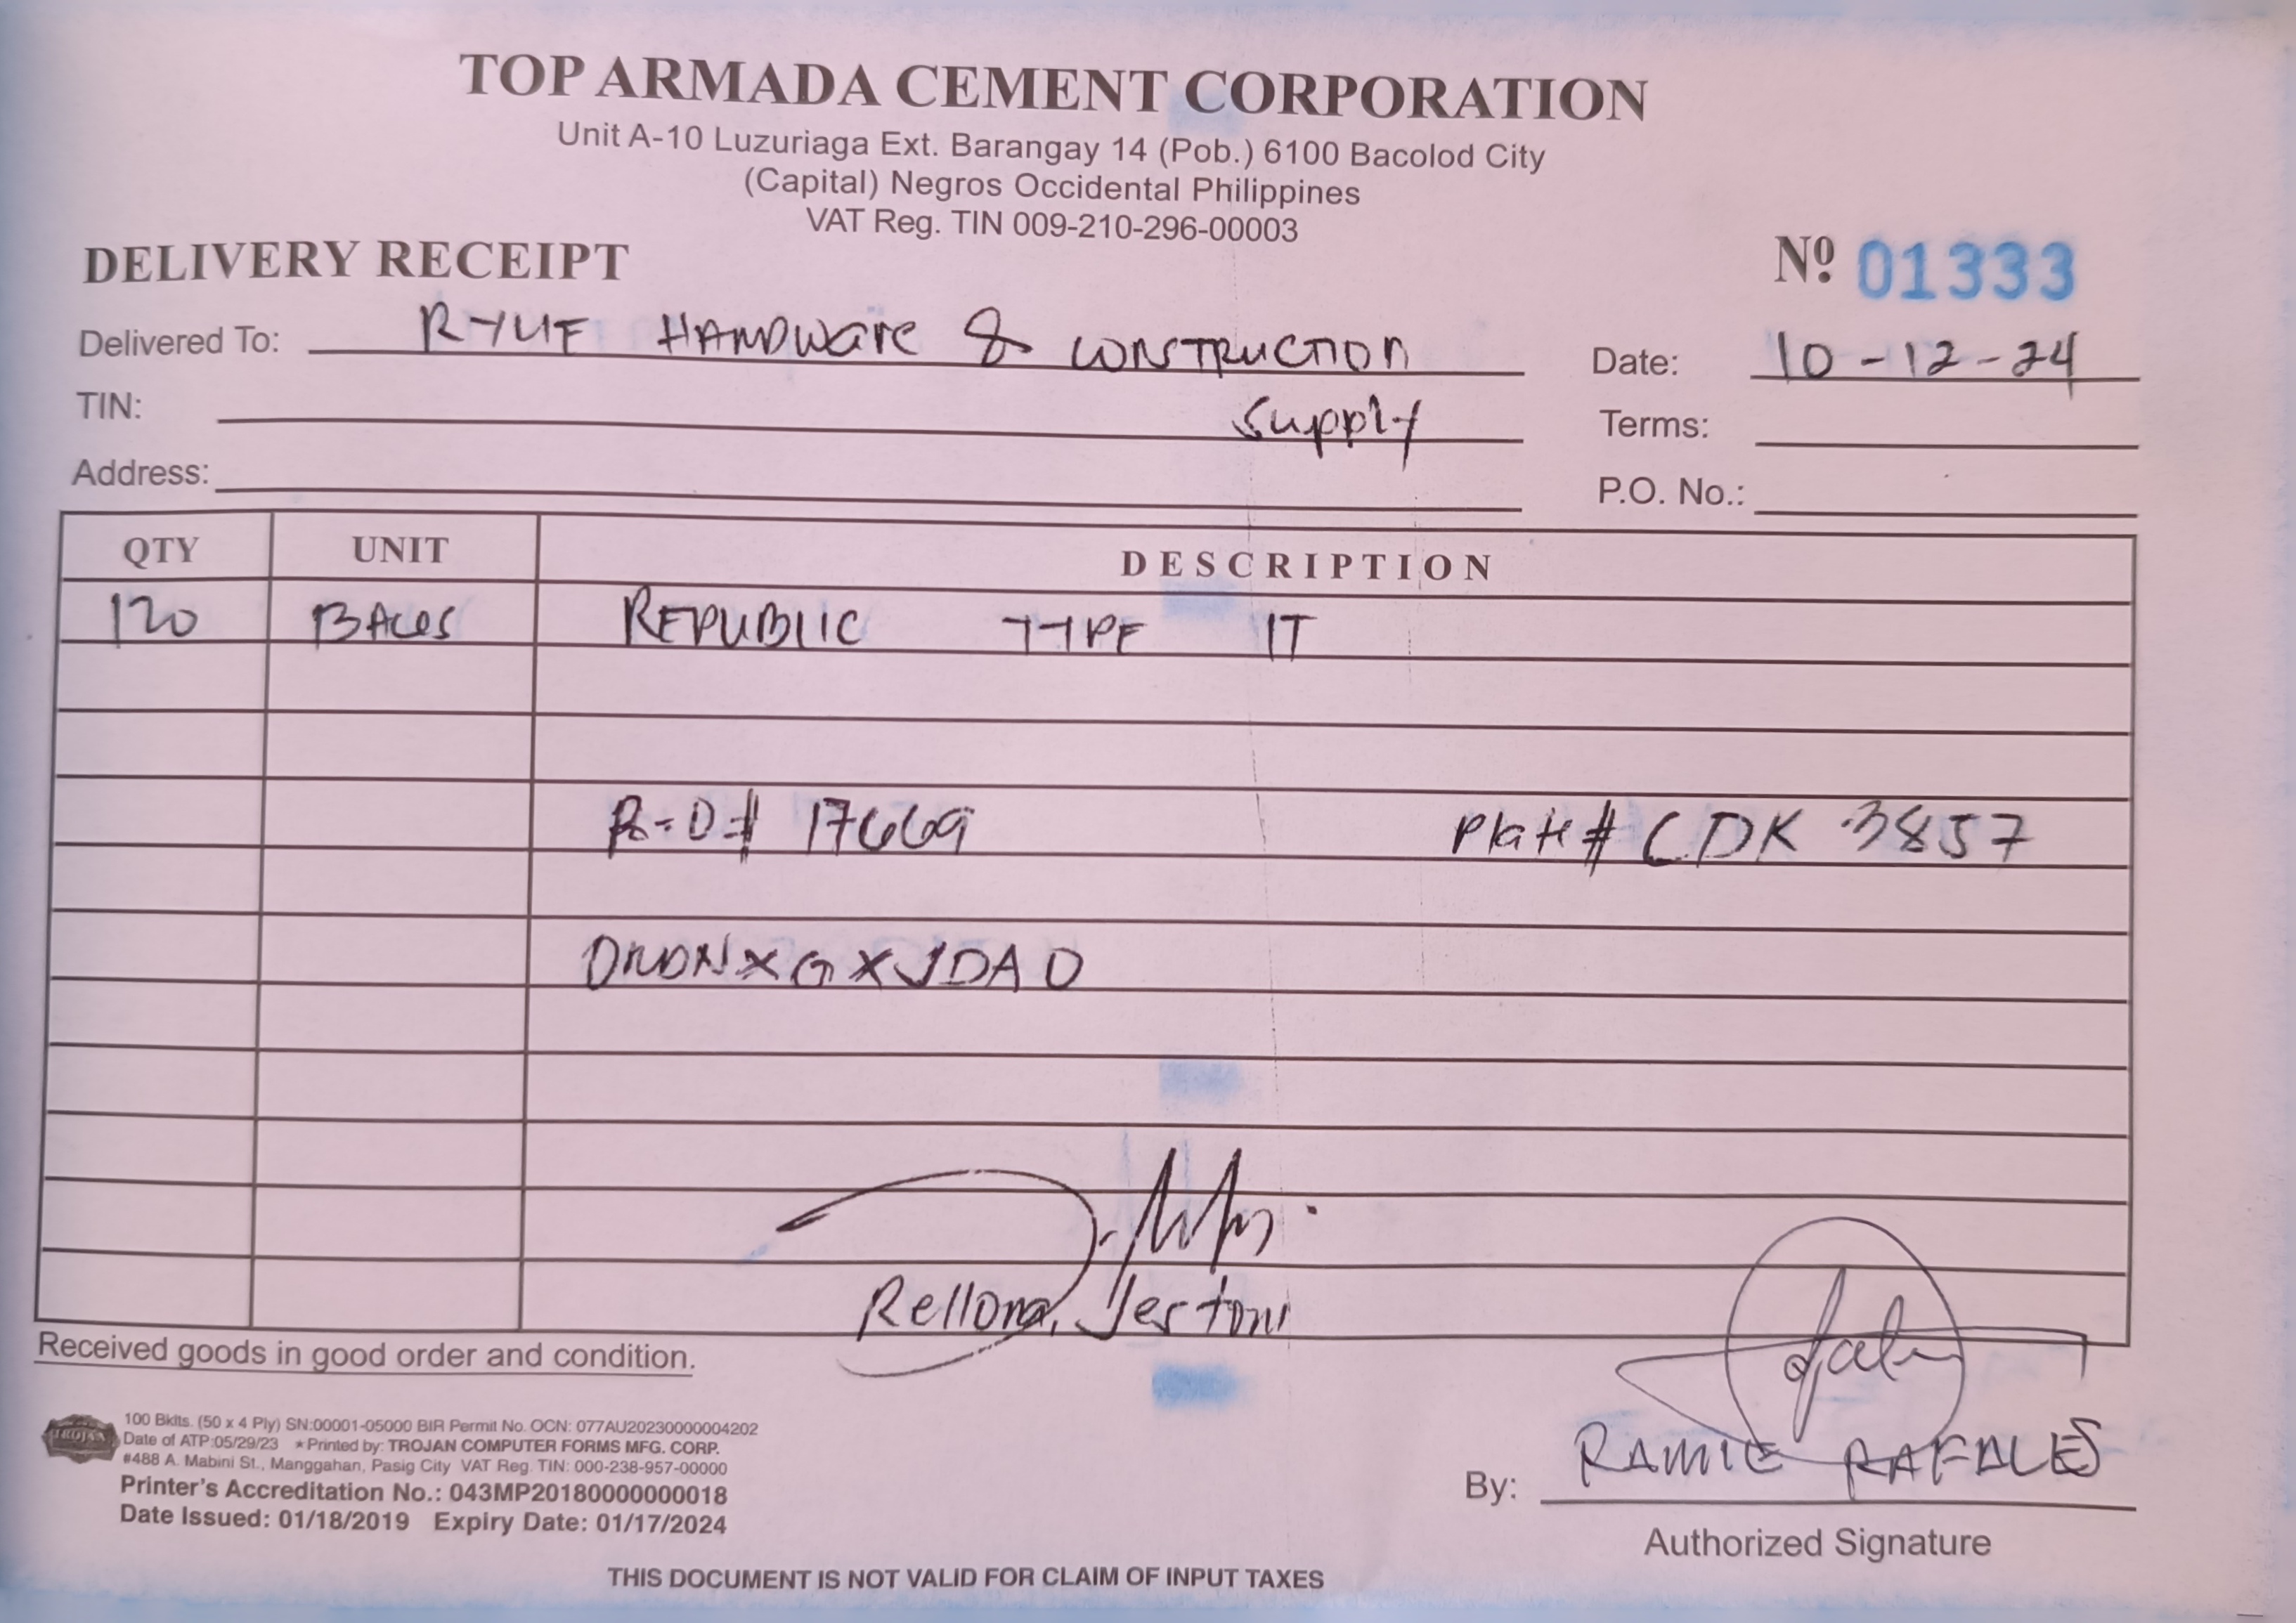 TOP ARMADA CEMENT CORPORATION
Unit A-10 Luzuriaga Ext. Barangay 14 (Pob.) 6100 Bacolod City
(Capital) Negros Occidental Philippines
VAT Reg. TIN 009-210-296-00003
DELIVERY RECEIPT Nº 01333
Delivered To: HARDWare & CONSTRUCTION Date: 10-12-24
TIN: Supply Terms:
Address: P.O. No.:
QTY UNIT DESCRIPTION
120 REPUBLIC TYPE
17669 Plate# CDK 3857
Rellona, Jestoni
Received goods in good order and condition.
TROJAN
100 Bklts. (50 x 4 Ply) SN:00001-05000 BIR Permit No. OCN: 077AU20230000004202
Date of ATP:05/29/23 ★Printed by: TROJAN COMPUTER FORMS MFG. CORP.
#488 A. Mabini St., Manggahan, Pasig City VAT Reg. TIN: 000-238-957-00000
Printer's Accreditation No.: 043MP20180000000018
Date Issued: 01/18/2019 Expiry Date: 01/17/2024
By: RAMIE RAFALES
Authorized Signature
THIS DOCUMENT IS NOT VALID FOR CLAIM OF INPUT TAXES